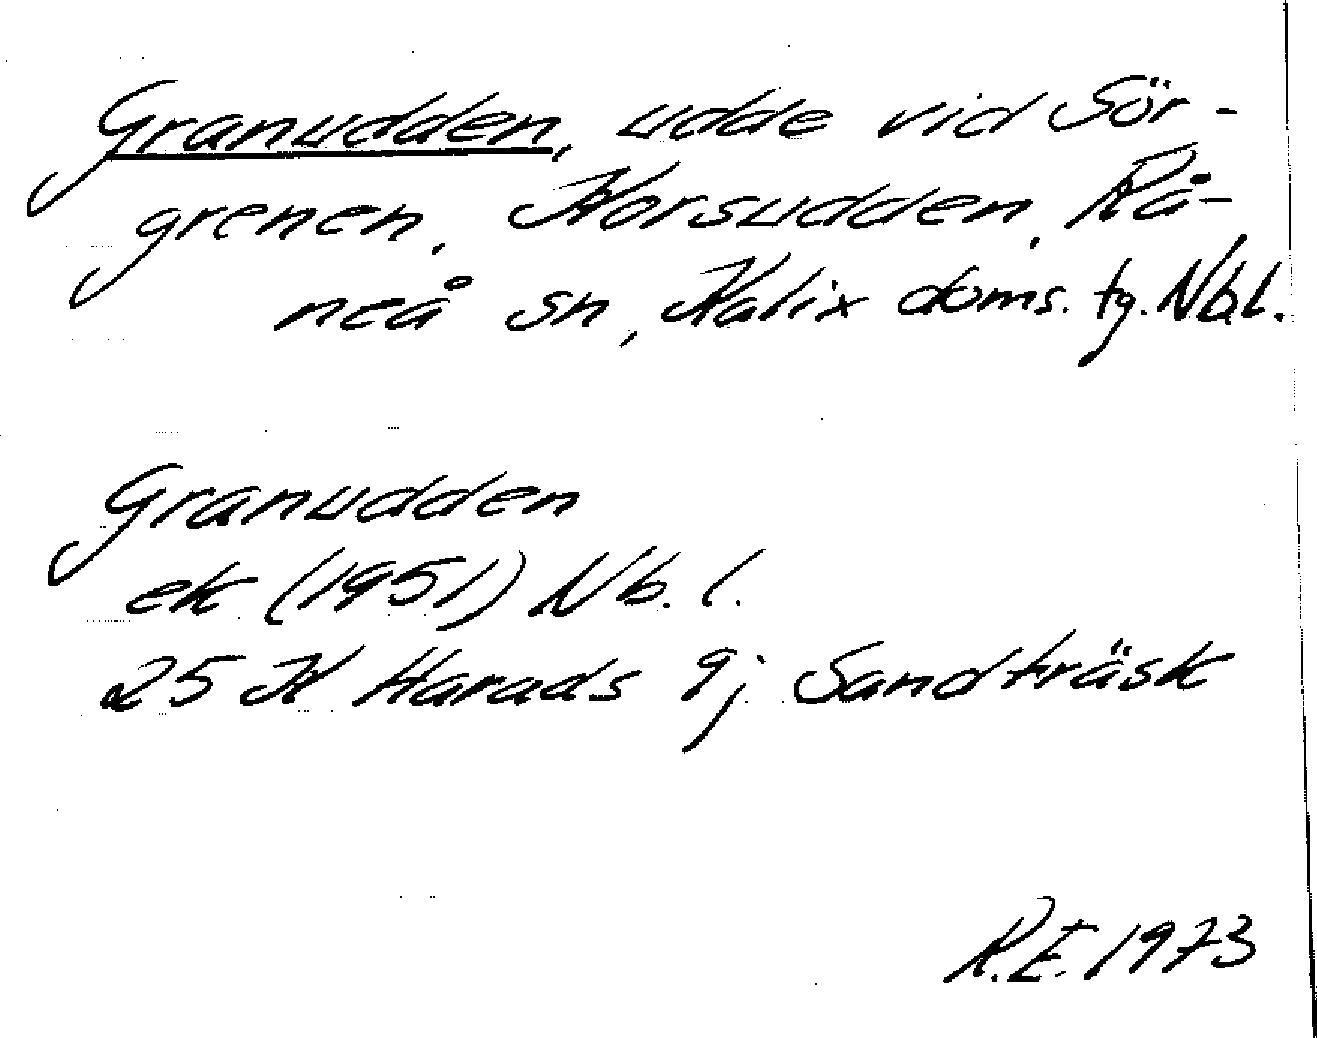 Granudden, udde vid Sör-
grenen, Korsudden, Rå-
neå sn, Kalix doms. tg. Nb.l.
Granudden
ek (1951) Nb. l.
25 K Harads 9j Sandträsk
R.E. 1973